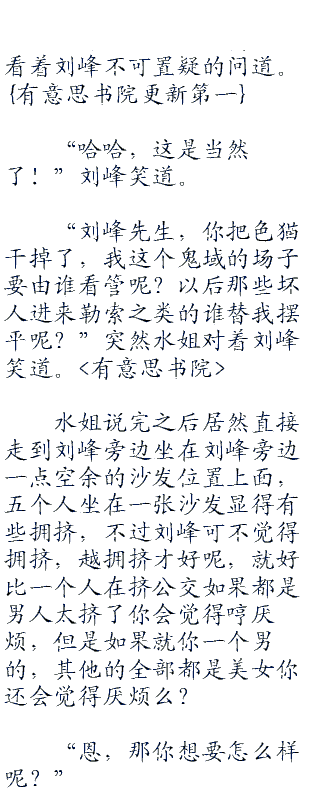 看着刘峰不可置疑的问道。
{有意思书院更新第一}
“哈哈，这是当然
了！”刘峰笑道。
“刘峰先生，你把色猫
干掉了，我这个鬼域的场子
要由谁看管呢？以后那些坏
人进来勒索之类的谁替我摆
平呢？”突然水姐对着刘峰
笑道。<有意思书院>
水姐说完之后居然直接
走到刘峰旁边坐在刘峰旁边
一点空余的沙发位置上面，
五个人坐在一张沙发显得有
些拥挤，不过刘峰可不觉得
拥挤，越拥挤才好呢，就好
比一个人在挤公交如果都是
男人太挤了你会觉得哼厌
烦，但是如果就你一个男
的，其他的全部都是美女你
还会觉得厌烦么？
“恩，那你想要怎么样
呢？”